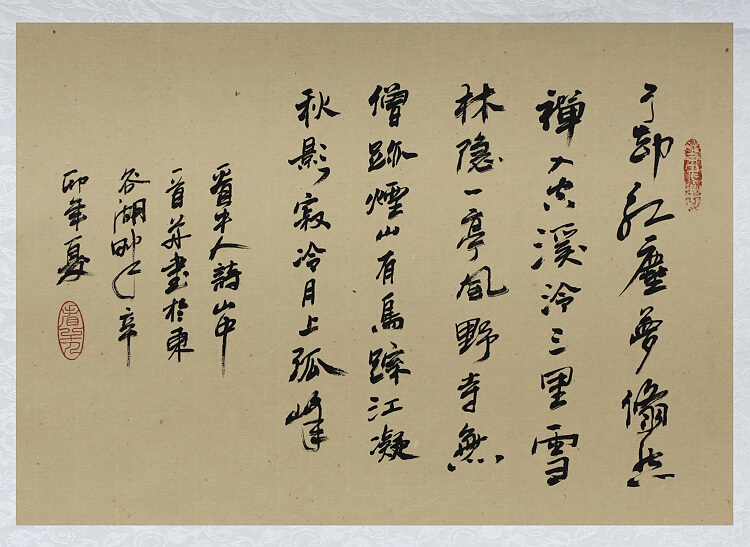 了却红塵夢翛然
禪入空溪泠三里雪
林隐一亭風野寺無
僧跡煙山有鳥蹤江凝
秋影寂冷月上孤峰
牛人詩山中
一首并書於東
谷湖畔辛
卯年夏